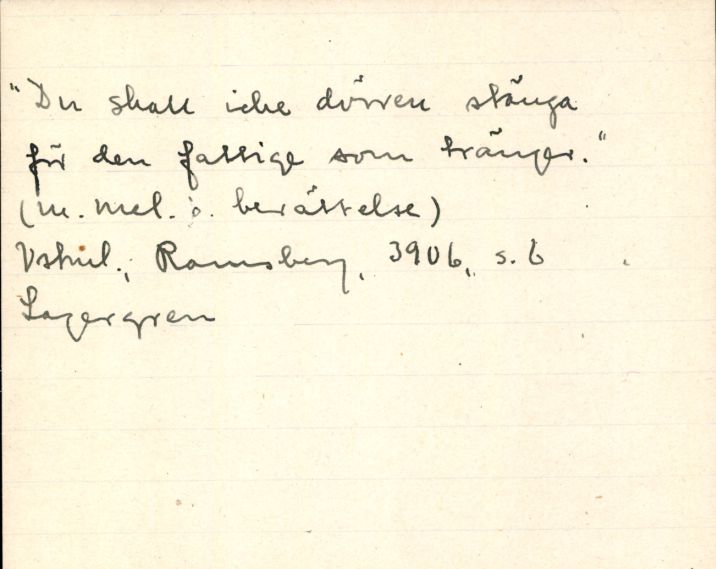 "Du skall icke dörren stänga
för den fattige som tränger."
(m. mel. o. berättelse)
Vstml., Ramsberg, 3906, s. 6
Lagergren